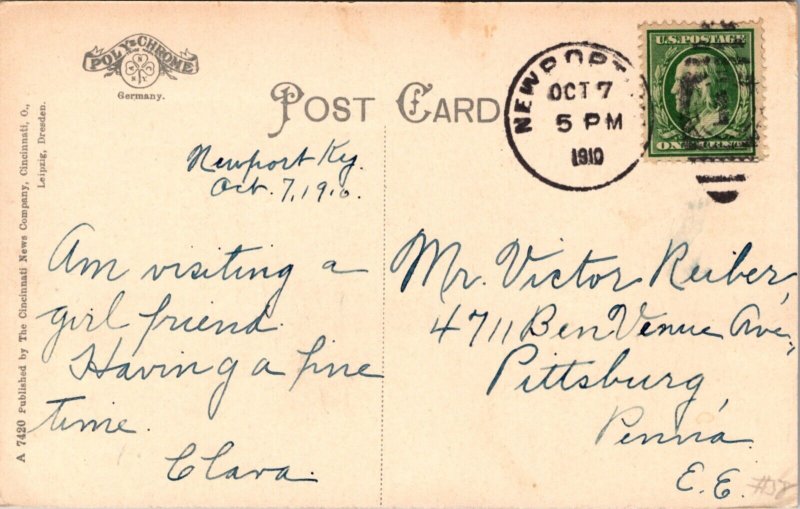 POLY-CHROME
Germany.
POST CARD
NEWPORT
OCT 7
5 PM
1910
U.S. POSTAGE
A 7420 Published by The Cincinnati News Company, Cincinnati, O.,
Leipzig, Dresden.
Newport Ky.
Oct. 7, 1910.
Am visiting a
girl friend.
Having a fine
time.
Clara.
Mr. Victor Reiber,
4711 Ben Venue Ave,
Pittsburg,
Penna.
E. E.
#58